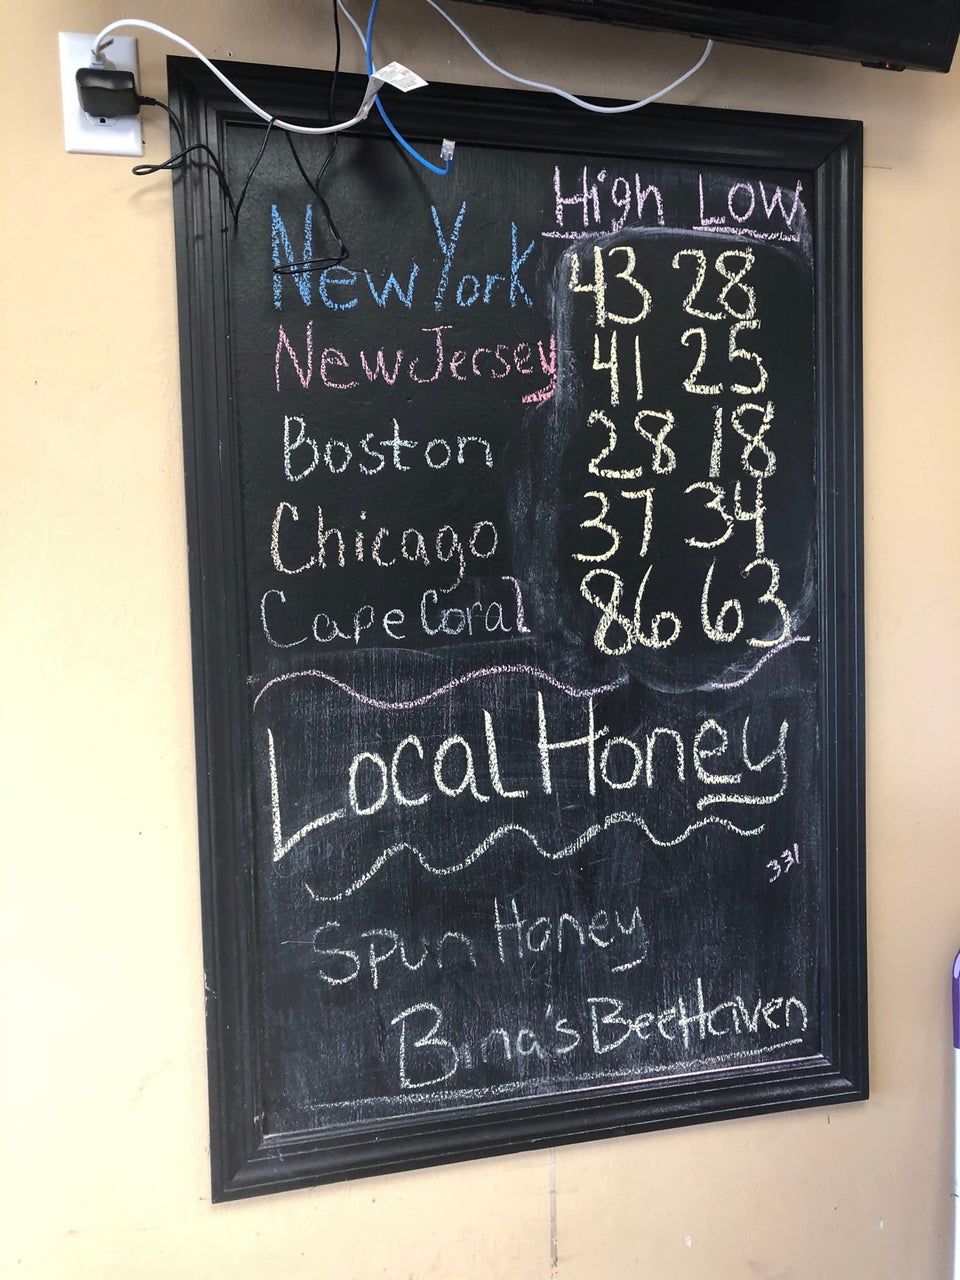 High Low
New York 43 28
New Jersey 41 25
Boston 28 18
Chicago 37 34
Cape Coral 86 63
Local Honey
331
Spun Honey
Bina's BeeHaven